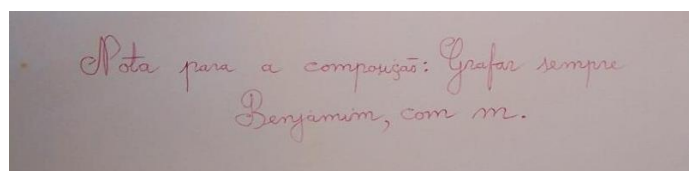 Nota para a composição: Grafar sempre
Benjamim, com m.